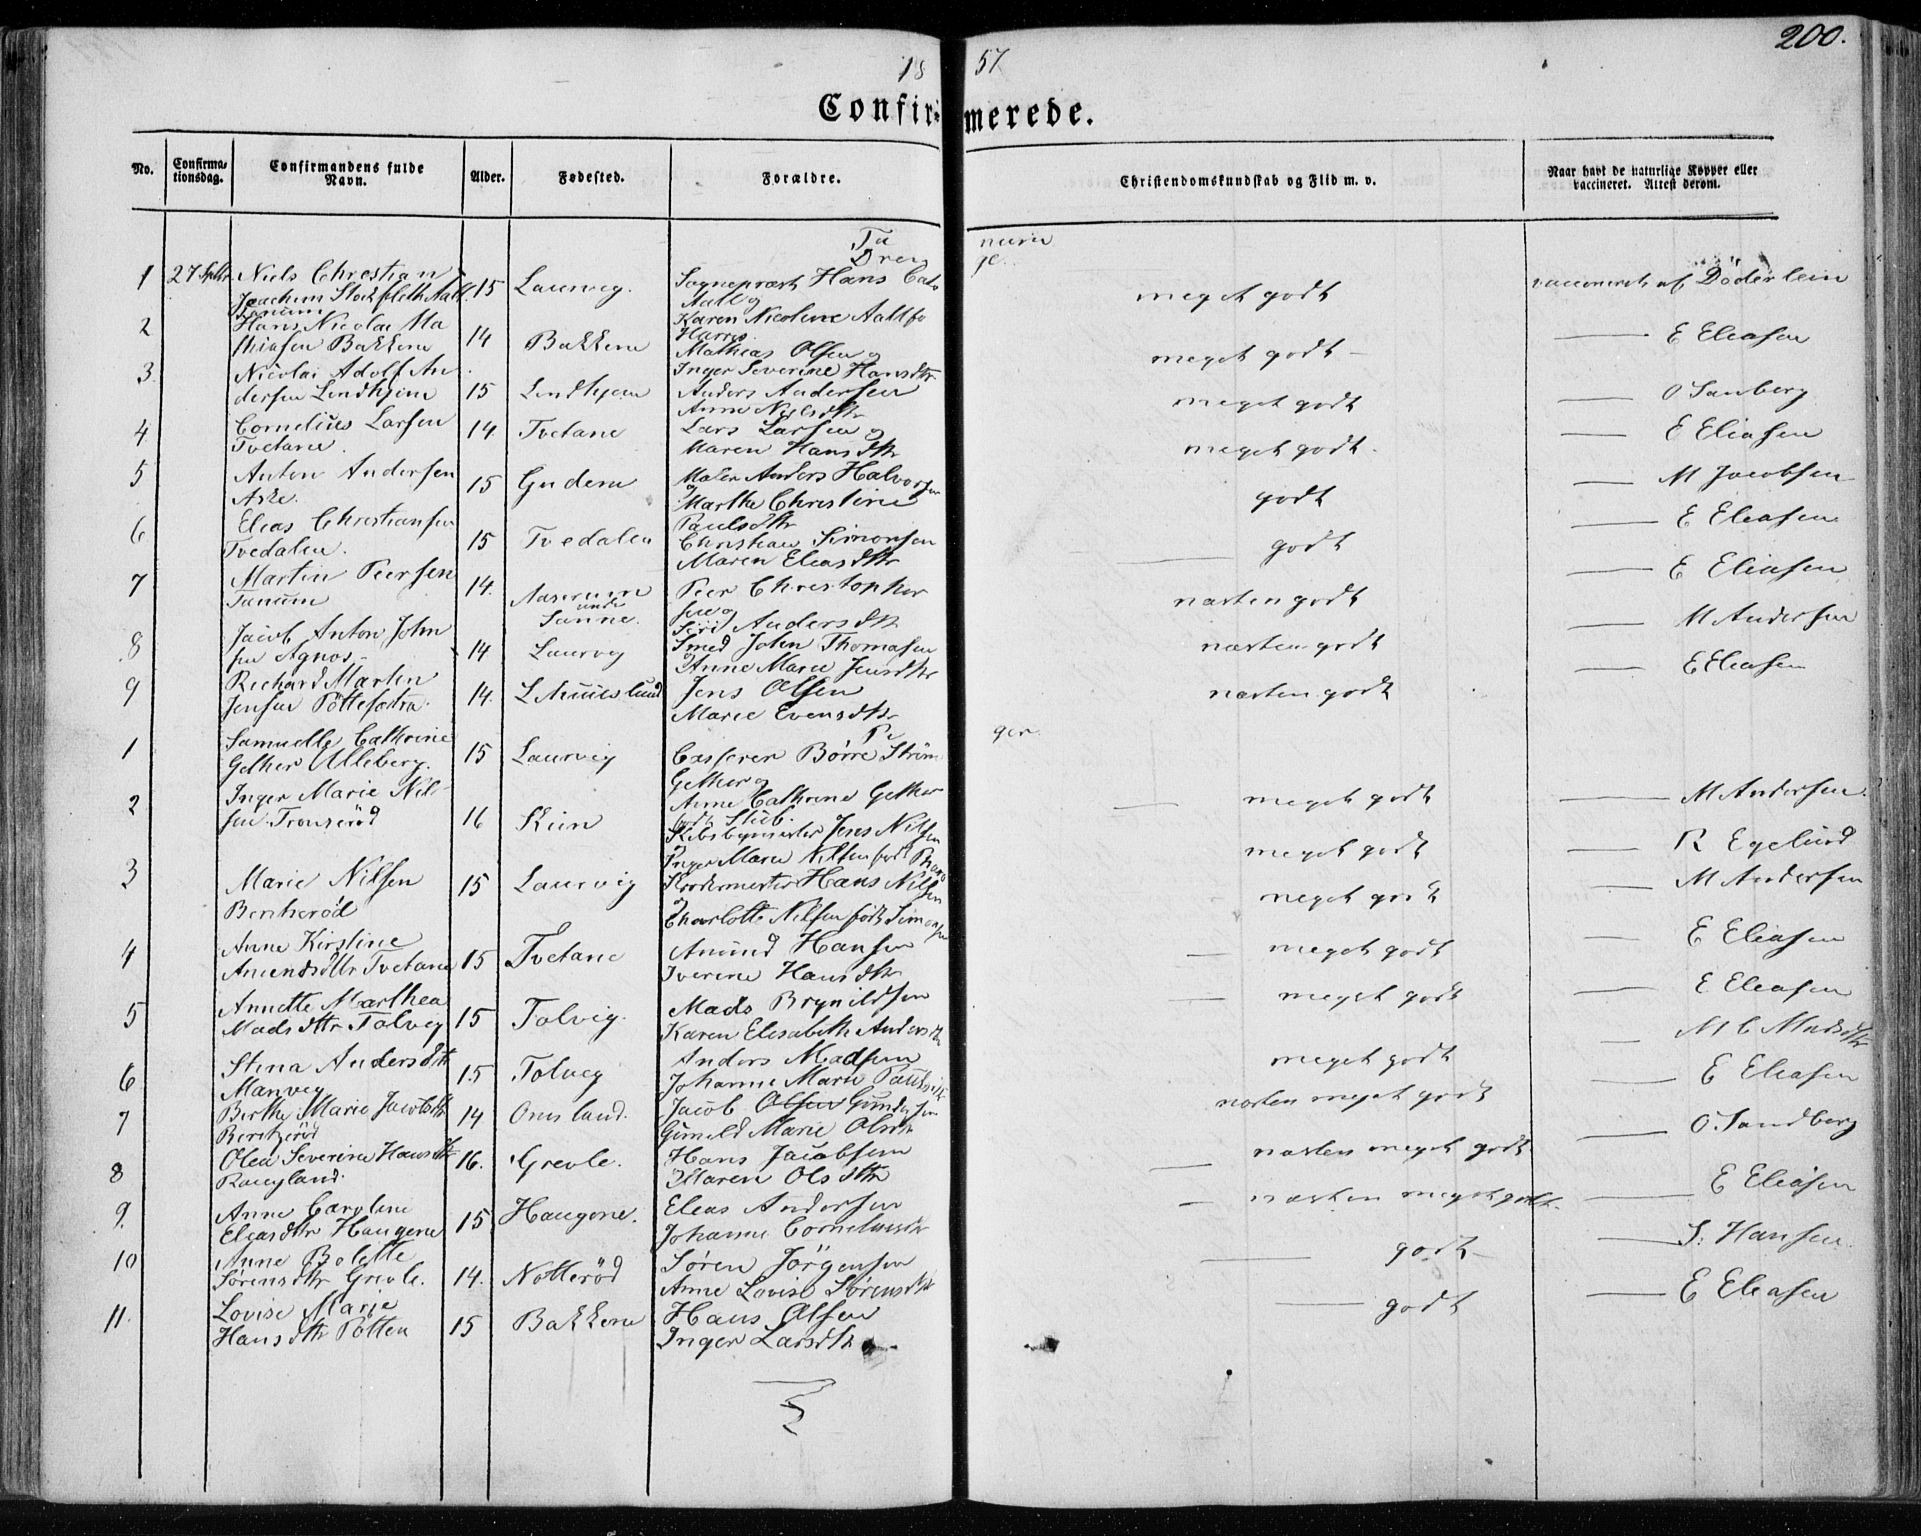 200.
18 57
Confirmerede.
No.
Confirmationsdag.
Confirmandens fulde Navn.
Alder.
Fødested.
Forældre.
Christendomskundskab og Flid m. v.
Naar havt de naturlige Kopper eller vaccineret. Attest derom.
Ta num
Dren ge
1 27 Septbr Niels Christian 15 Laurvig. Sognepræst Hans meget godt vaccineret af Döderlein
Joachim Stockfleth Aall Aall og
Tanum Karen Nicoline Aall fø
2 Hans Nicolai Ma 14 Bakkene Harris. meget godt — E Eliasen
thiasen Bakkene Mathias Olsen og
3 Nicolai Adolf An Inger Severine Hansdtr
dersen Lindhjem 15 Lindhjem Anders Andersen meget godt — O Sanberg
Anne Nielsdtr
4 Cornelius Larsen 14 Tvetane Lars Larsen og meget godt. — E Eliasen
Tvetane. Maren Hansdtr
5 Anton Andersen 15 Gudem Maler Anders Halvorsen godt — M Jacobsen
Aske. og Marthe Christine
6 Elias Christiansen Paulsdtr
Tvedalen. 15 Tvedalen Christian Simonsen — godt — E Eliasen
Maren Eliasdtr
7 Martin Peersen 14. Aaserum Peer Christopher næsten godt — E Eliasen
Tanum under sen og
Sanne. Siri Andersdtr
8 Jacob Anton John 14 Laurvig Smed John Thomasen næsten godt — M Andersen
sen Agnes og Anne Marie Jensdtr
9 Richard Martin 14. Jens Olsen næsten godt E Eliasen
Jensen Pøttesætra. Marie Evensdtr
Pi ger.
1 Samuelle Cathrine 15 Laurvig Casserer Børre Strøm — meget godt — M Andersen.
Gether Alleberg. Gether og
Anne Cathrine Gether
2 Inger Marie Nil 16 Skien født Stub. meget godt — R Egelund
sen Skibsbygmester Jens Nilsen
Inger Marie Nilsen født
3 Marie Nilsen 15 Laurvig Hans Nilsen meget godt — M Andersen
Bentserød og Charlotte Nilsen født Simonsen
4 Anne Kirstine 15 Tvetane Amund Hansen — meget godt — E Eliasen
Amundsdttr Tvetane Iverine Hansdtr
5 Annette Marthea 15 Tolvig. Mads Brynildsen — meget godt — E Eliasen
Madsdttr Tolvig Karen Elisabeth Andersdtr
6 Stina Andersdtr 15 Tolvig Anders Madsen meget godt — M C Madsdtr
Manvig Johanne Marie Paulsdtr
7 Berthe Marie Jacobsdtr 14 Onsland. Jacob Olsen Gundersen næsten meget godt — E Eliasen
Bentserød Gunild Marie Olsdtr
8 Olea Severine Hansdtr 16. Grevle. Hans Jacobsen — næsten meget godt — O. Sandberg
Maren Olsdttr
9. Anne Caroline 15 Haugene. Elias Andersen — næsten meget godt. — E Eliasen
Eliasdttr Haugene Johanne Corneliusdtr
10 Anne Bolette 14. Notterød Søren Jörgensen — godt — S: Hansen
Sørensdttr Grevle. Anne Lovise Sørensdtr
11. Lovise Marie 15 Bakkene Hans Olsen — godt — E Eliasen
Hansdttr Pötten Inger Larsdtr